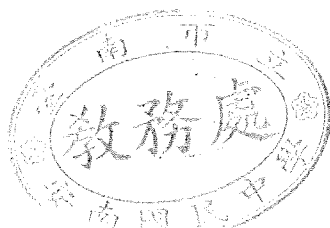 臺南市立
教務處
安南國民中學